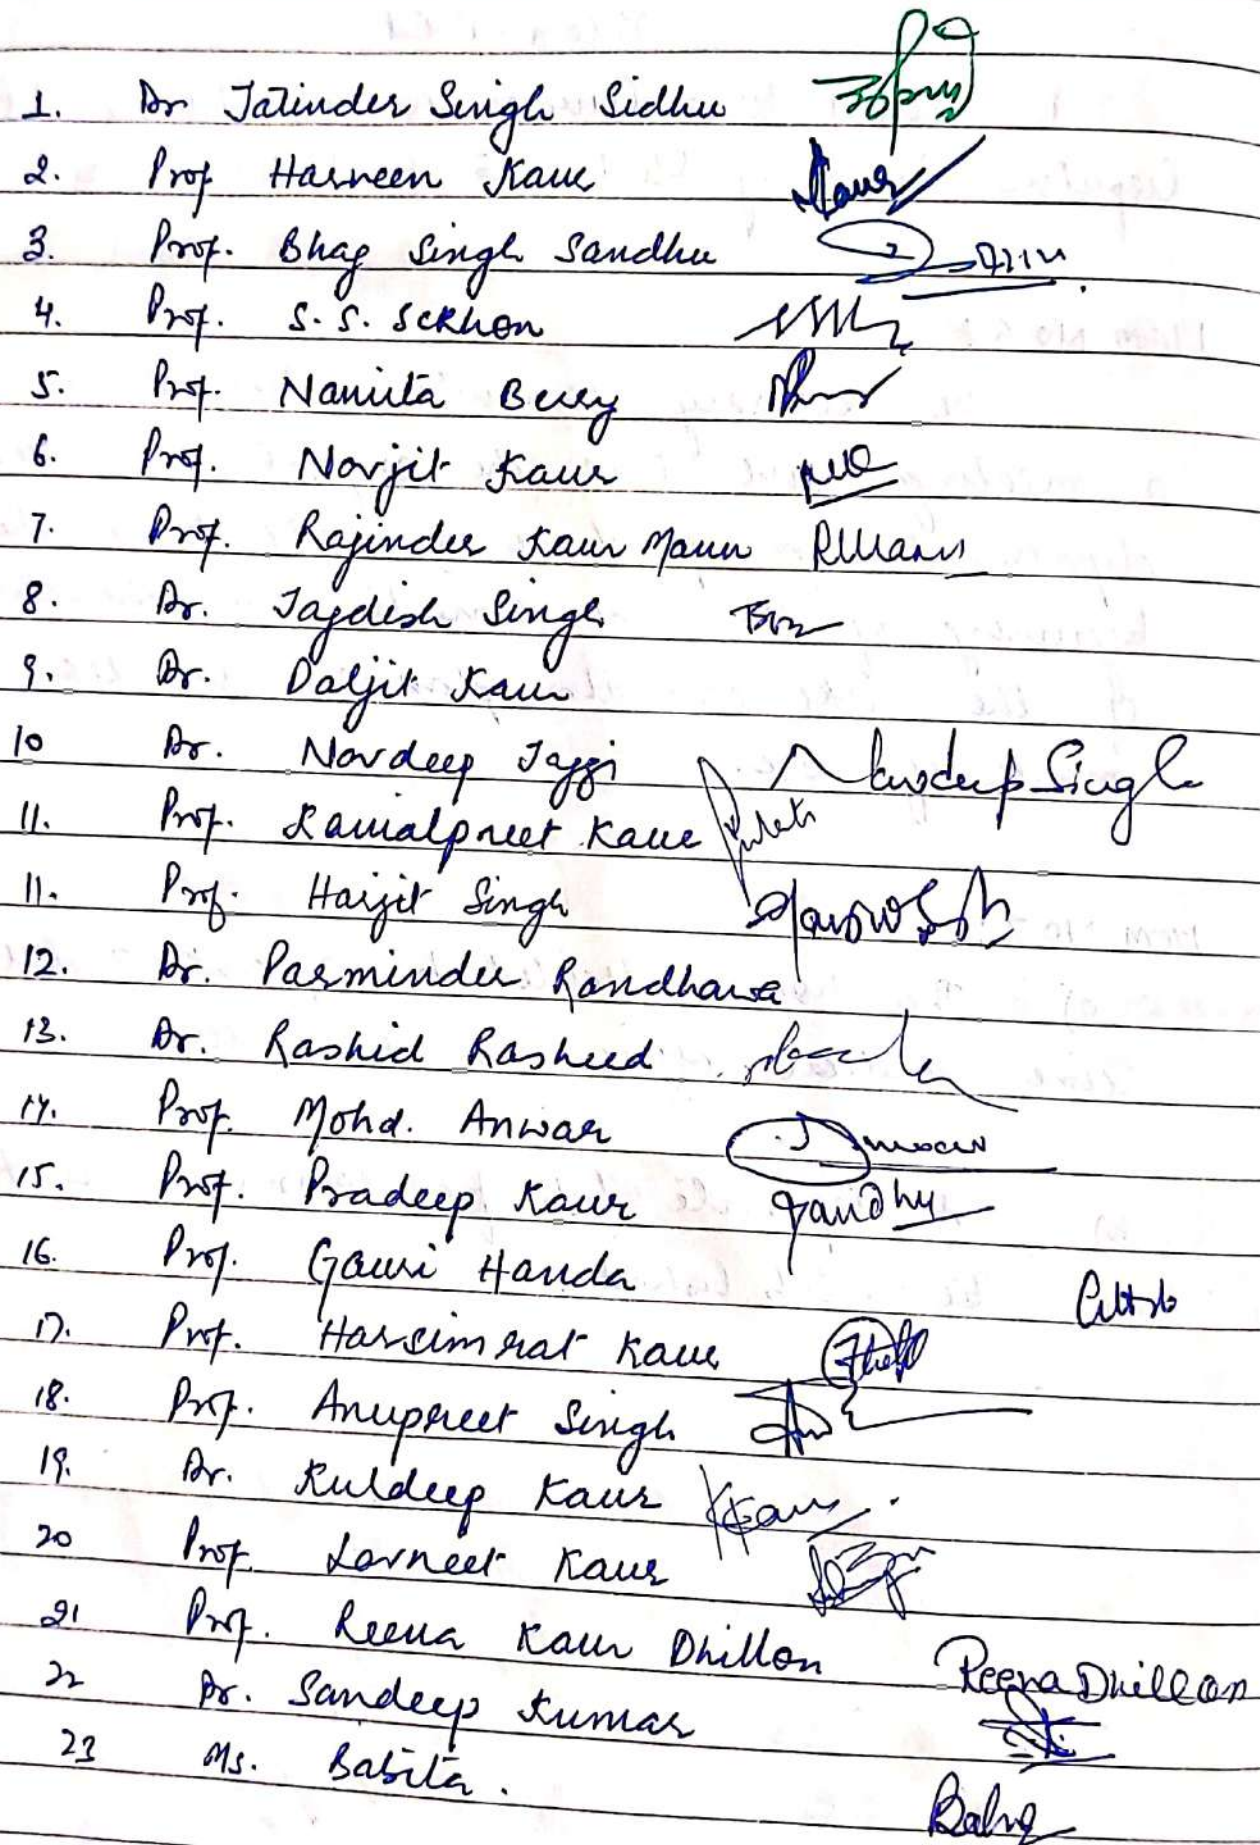 1. Dr Jatinder Singh Sidhu
2. Prof Harneen Kaur Kaur
3. Prof. Bhag Singh Sandhu
4. Prof. S. S. Sekhon
5. Prof. Namita Berry
6. Prof. Navjit Kaur
7. Prof. Rajinder Kaur Mann RMann
8. Dr. Jagdish Singh
9. Dr. Daljit Kaur
10 Dr. Navdeep Jaggi Navdeep Singh
11. Prof. Kamalpreet Kaur
11. Prof. Harjit Singh
12. Dr. Parminder Randhawa
13. Dr. Rashid Rasheed
14. Prof. Mohd. Anwar
15. Prof. Pradeep Kaur
16. Prof. Gauri Handa
17. Prof. Harsimrat Kaur
18. Prof. Anupreet Singh
19. Dr. Kuldeep Kaur KKaur
20 Prof. Lovneet Kaur
21 Prof. Reena Kaur Dhillon Reena Dhillon
22 Dr. Sandeep Kumar
23 Ms. Babita.